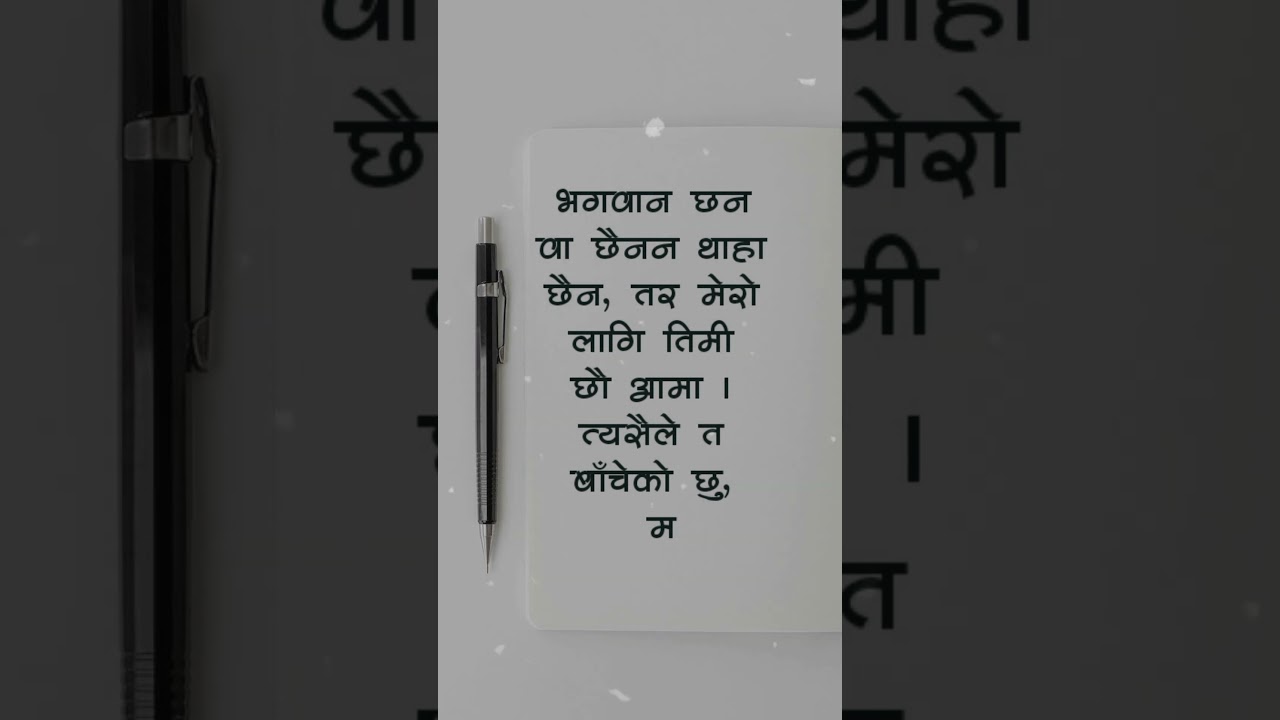 भगवान छन
वा छैनन थाहा
छैन, तर मेरो
लागि तिमी
छौ आमा ।
त्यसैले त
बाँचेको छु,
म